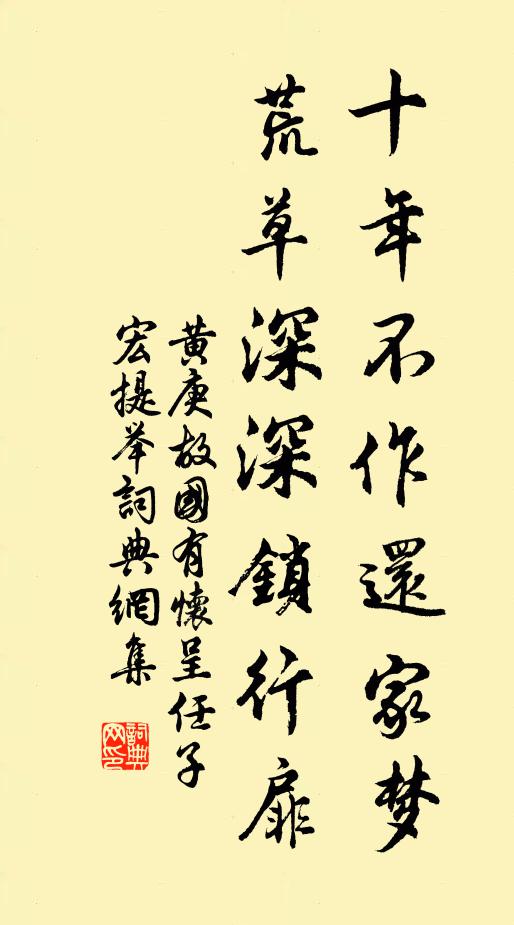 十年不作還家梦
荒草深深鎖行扉
黄庚故國有懷呈任子
宏提举詞典網集
詞典
网印